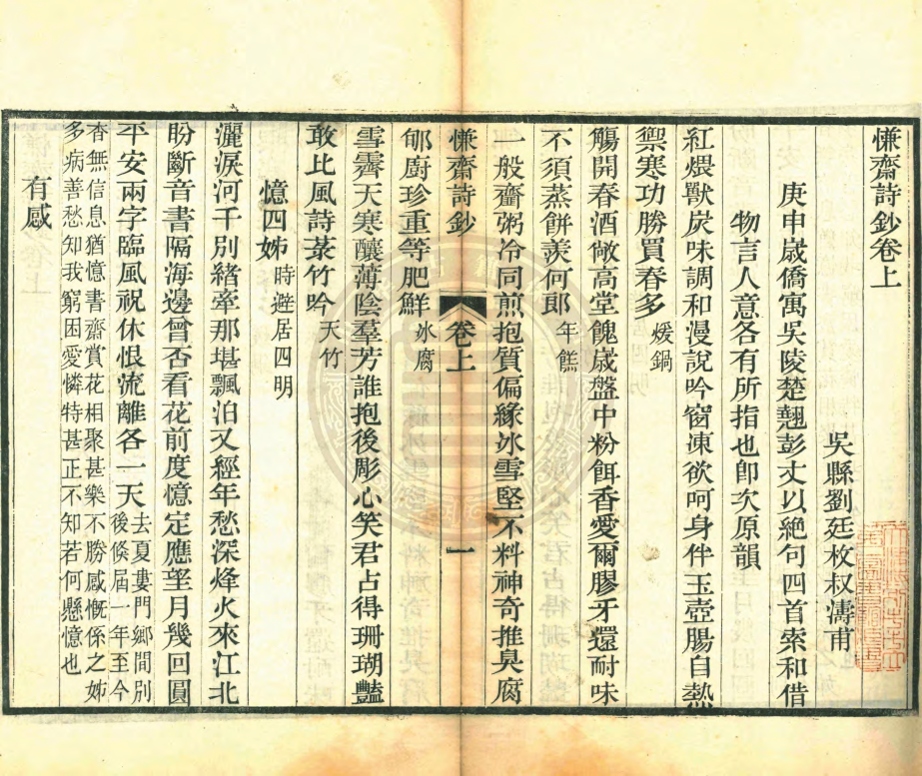 慊齋詩鈔卷上
吳縣劉廷枚叔濤甫
庚申歲僑寓吳陵楚翹彭丈以絕句四首索和借
物言人意各有所指也卽次原韻
紅煨獸炭味調和漫說吟窗凍欲呵身伴玉壺腸自熱
禦寒功勝買春多 煖鍋
觴開春酒敞高堂餽歲盤中粉餌香愛爾膠牙還耐味
不須蒸餅羨何郎 年餻
一般齏粥冷同煎抱質偏緣冰雪堅不料神奇推臭腐
慊齋詩鈔 卷上 一
郇廚珍重等肥鮮 冰腐
雪霽天寒釀薄陰羣芳誰抱後彫心笑君占得珊瑚豔
敢比風詩菉竹吟 天竹
憶四姊 時避居四明
灑淚河干別緒牽那堪飄泊又經年愁深烽火來江北
盼斷音書隔海邊曾否看花前度憶定應望月幾回圓
平安兩字臨風祝休恨流離各一天 去夏婁門鄉間別後倏屆一年至今
杳無信息猶憶書齋賞花相聚甚樂不勝感慨係之姊
多病善愁知我窮困愛憐特甚正不知若何懸憶也
有感